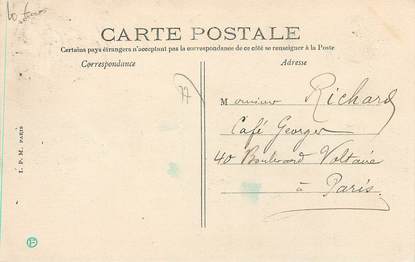 CARTE POSTALE
Certains pays étrangers n'acceptant pas la correspondance de ce côté se renseigner à la Poste
Correspondance
Adresse
77
Monsieur Richard
Café Georges
40 Boulevard Voltaire
à Paris
I. P. M. PARIS